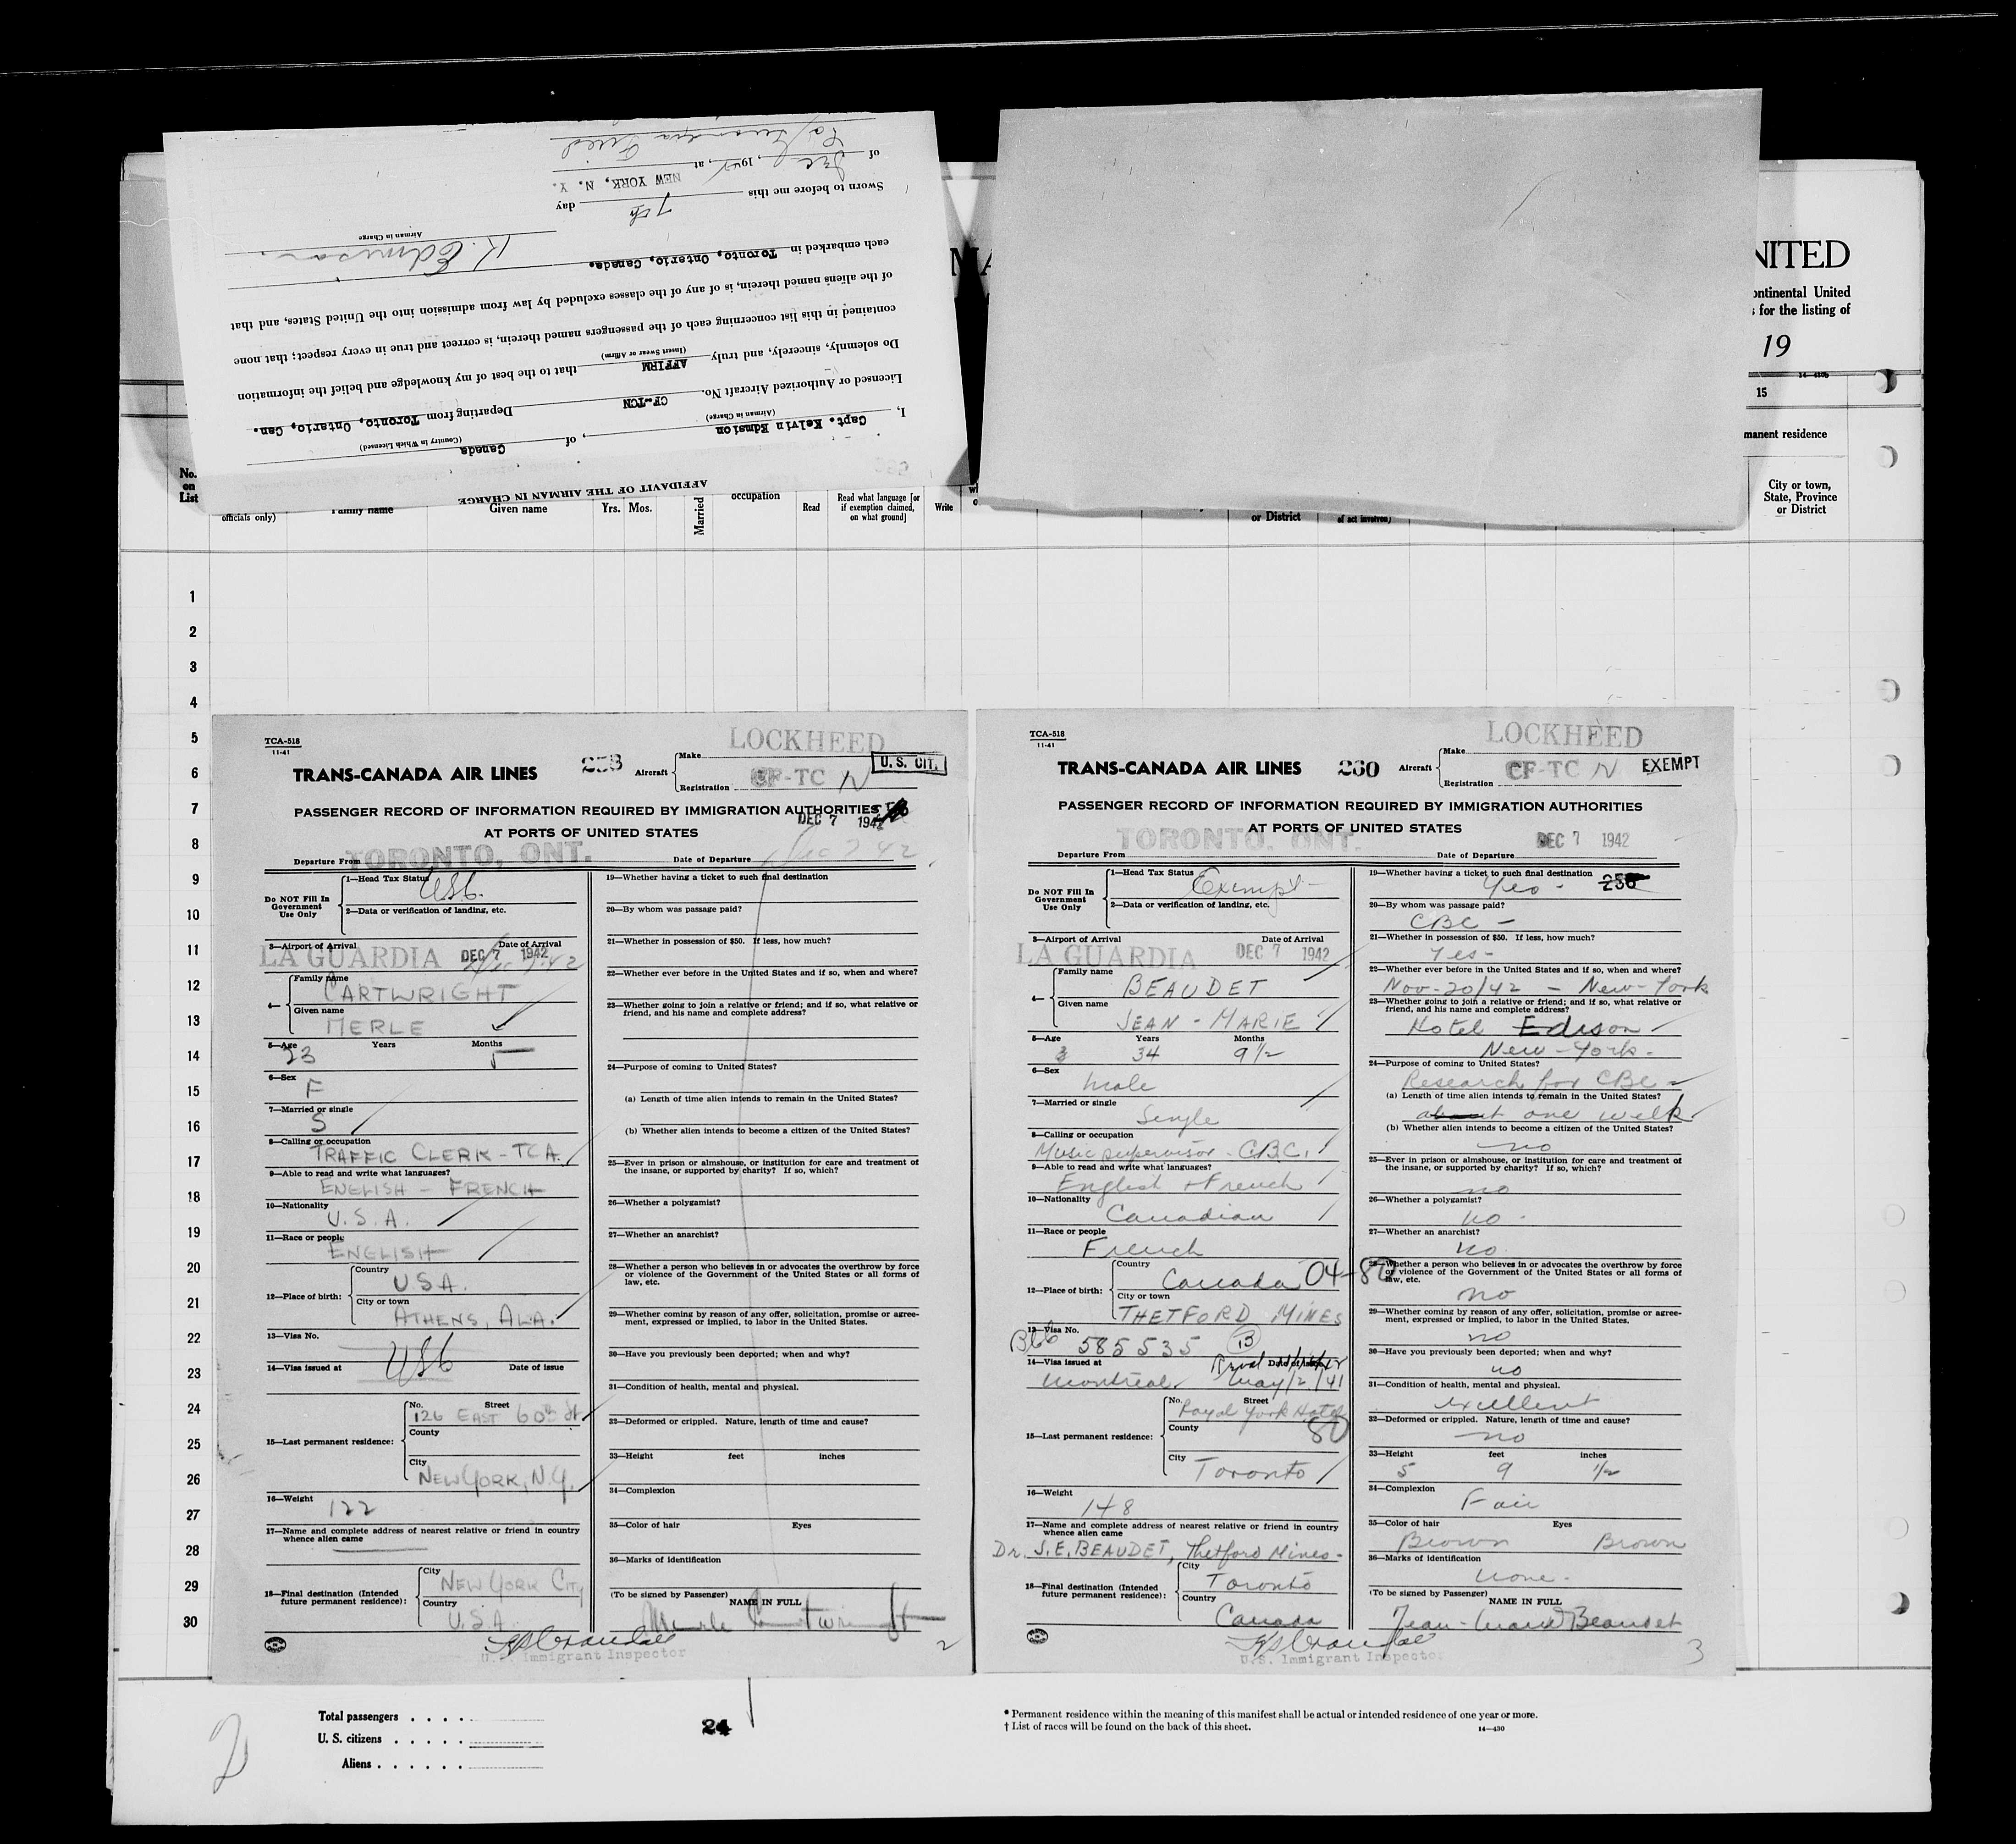 AFFIDAVIT OF THE AIRMAN IN CHARGE
I, Capt. Kelvin Edmsion, of Canada
(Airman in Charge) (Country in Which Licensed)
Licensed or Authorized Aircraft No. CF-TCN Departing from Toronto, Ontario, Can.
Do solemnly, sincerely, and truly AFFIRM that to the best of my knowledge and belief the information
(Insert Swear or Affirm)
contained in this list concerning each of the passengers named therein, is correct and true in every respect; that none
of the aliens named therein, is of any of the classes excluded by law from admission into the United States, and that
each embarked in Toronto, Ontario, Canada.
K. Edmison
Airman in Charge
Sworn to before me this 7th day
NEW YORK, N. Y.
of Dec, 1942, at
NITED
ontinental United
s for the listing of
19
14-430b
15
manent residence
No. on List
officials only)
Family name
Given name
Yrs. Mos.
Married
occupation
Read
Read what language [or if exemption claimed, on what ground]
Write
or District
of act involves)
City or town, State, Province or District
1
2
3
4
5
6
7
8
9
10
11
12
13
14
15
16
17
18
19
20
21
22
23
24
25
26
27
28
29
30
TCA-518
11-41
LOCKHEED
TRANS-CANADA AIR LINES 258 Aircraft Make
Registration CF-TC N
U. S. CIT.
PASSENGER RECORD OF INFORMATION REQUIRED BY IMMIGRATION AUTHORITIES
AT PORTS OF UNITED STATES
DEC 7 1942
Departure From TORONTO, ONT. Date of Departure Dec 7 42
Do NOT Fill In Government Use Only
1—Head Tax Status USC.
2—Data or verification of landing, etc.
3—Airport of Arrival Date of Arrival
LA GUARDIA DEC 7 1942
4— Family name CARTWRIGHT
Given name MERLE
5—Age Years Months
23 5
6—Sex F
7—Married or single S
8—Calling or occupation
TRAFFIC CLERK - TCA.
9—Able to read and write what languages?
ENGLISH - FRENCH
10—Nationality
U.S.A.
11—Race or people
ENGLISH
12—Place of birth: Country U.S.A.
City or town ATHENS, ALA.
13—Visa No.
USC
14—Visa issued at Date of issue
15—Last permanent residence: No. Street
126 EAST 60th St
County
City
NEW YORK, N.Y.
16—Weight 122
17—Name and complete address of nearest relative or friend in country whence alien came
18—Final destination (Intended future permanent residence): City NEW YORK CITY
Country U.S.A.
19—Whether having a ticket to such final destination
20—By whom was passage paid?
21—Whether in possession of $50. If less, how much?
22—Whether ever before in the United States and if so, when and where?
23—Whether going to join a relative or friend; and if so, what relative or friend, and his name and complete address?
24—Purpose of coming to United States?
(a) Length of time alien intends to remain in the United States?
(b) Whether alien intends to become a citizen of the United States?
25—Ever in prison or almshouse, or institution for care and treatment of the insane, or supported by charity? If so, which?
26—Whether a polygamist?
27—Whether an anarchist?
28—Whether a person who believes in or advocates the overthrow by force or violence of the Government of the United States or all forms of law, etc.
29—Whether coming by reason of any offer, solicitation, promise or agreement, expressed or implied, to labor in the United States.
30—Have you previously been deported; when and why?
31—Condition of health, mental and physical.
32—Deformed or crippled. Nature, length of time and cause?
33—Height feet inches
34—Complexion
35—Color of hair Eyes
36—Marks of identification
(To be signed by Passenger) NAME IN FULL
Merle Cartwright
U.S. Immigrant Inspector
2
TCA-518
11-41
LOCKHEED
TRANS-CANADA AIR LINES 260 Aircraft Make
Registration CF-TC N
EXEMPT
PASSENGER RECORD OF INFORMATION REQUIRED BY IMMIGRATION AUTHORITIES
AT PORTS OF UNITED STATES
Departure From TORONTO, ONT. Date of Departure DEC 7 1942
Do NOT Fill In Government Use Only
1—Head Tax Status Exempt
2—Data or verification of landing, etc.
3—Airport of Arrival Date of Arrival
LA GUARDIA DEC 7 1942
4— Family name BEAUDET
Given name JEAN-MARIE
5—Age Years Months
34 9 1/2
6—Sex Male
7—Married or single Single
8—Calling or occupation
Music supervisor - CBC.
9—Able to read and write what languages?
English + French
10—Nationality
Canadian
11—Race or people
French
12—Place of birth: Country Canada 04-80
City or town THETFORD MINES
13—Visa No.
585535 B
14—Visa issued at Date of issue
Montreal May/2/41
15—Last permanent residence: No. Street
Royal York Hotel
County 80
City Toronto
16—Weight 148
17—Name and complete address of nearest relative or friend in country whence alien came
Dr. J.E. BEAUDET, Thetford Mines-
18—Final destination (Intended future permanent residence): City Toronto
Country Canada
19—Whether having a ticket to such final destination
Yes - 256
20—By whom was passage paid?
CBC -
21—Whether in possession of $50. If less, how much?
Yes-
22—Whether ever before in the United States and if so, when and where?
Nov-20/42 - New-York
23—Whether going to join a relative or friend; and if so, what relative or friend, and his name and complete address?
Hotel Edison
New-York-
24—Purpose of coming to United States?
Research for CBC -
(a) Length of time alien intends to remain in the United States?
about one week
(b) Whether alien intends to become a citizen of the United States?
no
25—Ever in prison or almshouse, or institution for care and treatment of the insane, or supported by charity? If so, which?
no
26—Whether a polygamist?
no -
27—Whether an anarchist?
no
28—Whether a person who believes in or advocates the overthrow by force or violence of the Government of the United States or all forms of law, etc.
no
29—Whether coming by reason of any offer, solicitation, promise or agreement, expressed or implied, to labor in the United States.
no
30—Have you previously been deported; when and why?
no
31—Condition of health, mental and physical.
excellent
32—Deformed or crippled. Nature, length of time and cause?
no
33—Height feet inches
5 9 1/2
34—Complexion
Fair
35—Color of hair Eyes
Brown Brown
36—Marks of identification
none -
(To be signed by Passenger) NAME IN FULL
Jean-Marie Beaudet
U.S. Immigrant Inspector
3
2
Total passengers . . . .
U. S. citizens . . . . .
Aliens . . . . . .
24
* Permanent residence within the meaning of this manifest shall be actual or intended residence of one year or more.
† List of races will be found on the back of this sheet. 14—430